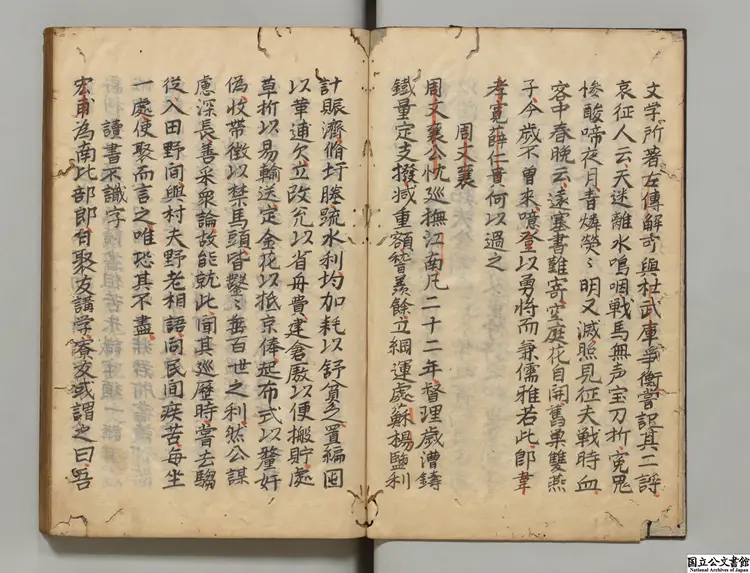 文学所著左傳解可與杜武庫爭衡嘗記其二詩
哀征人云天迷離水嗚咽戰馬無声宝刀折寃鬼
惨酸啼夜月青燐熒〻明又滅照見征夫戦時血
客中春晩云遠塞書難寄空庭花自開舊巣雙燕
子今歳不曽来噫登以勇将而兼儒雅若此郎韋
孝寛薛仁貴何以過之
周文襄
周文襄公忱巡撫江南凡二十二年督理歳漕鋳
鐵量定支撥减重額稽羨餘立綱運處蘇楊鹽利
計賑濟脩圩塍䟽水利均加耗以舒貧乏置編囤
以革逋欠立改兊以省舟費建倉厫以便搬貯處
草折以易輸送定金花以抵京俸起布式以釐奸
偽收帯徴以禁馬頭皆鑿〻垂百世之利然公謀
慮深長善采衆論故能就此聞其巡歷時嘗去騶
從入田野間與村夫野老相語問民間疾苦毎坐
一處使聚而言之唯恐其不盡
讀書不識字
宏甫為南比部郎日聚友講学寮友或謂之曰吾
国立公文書館
National Archives of Japan